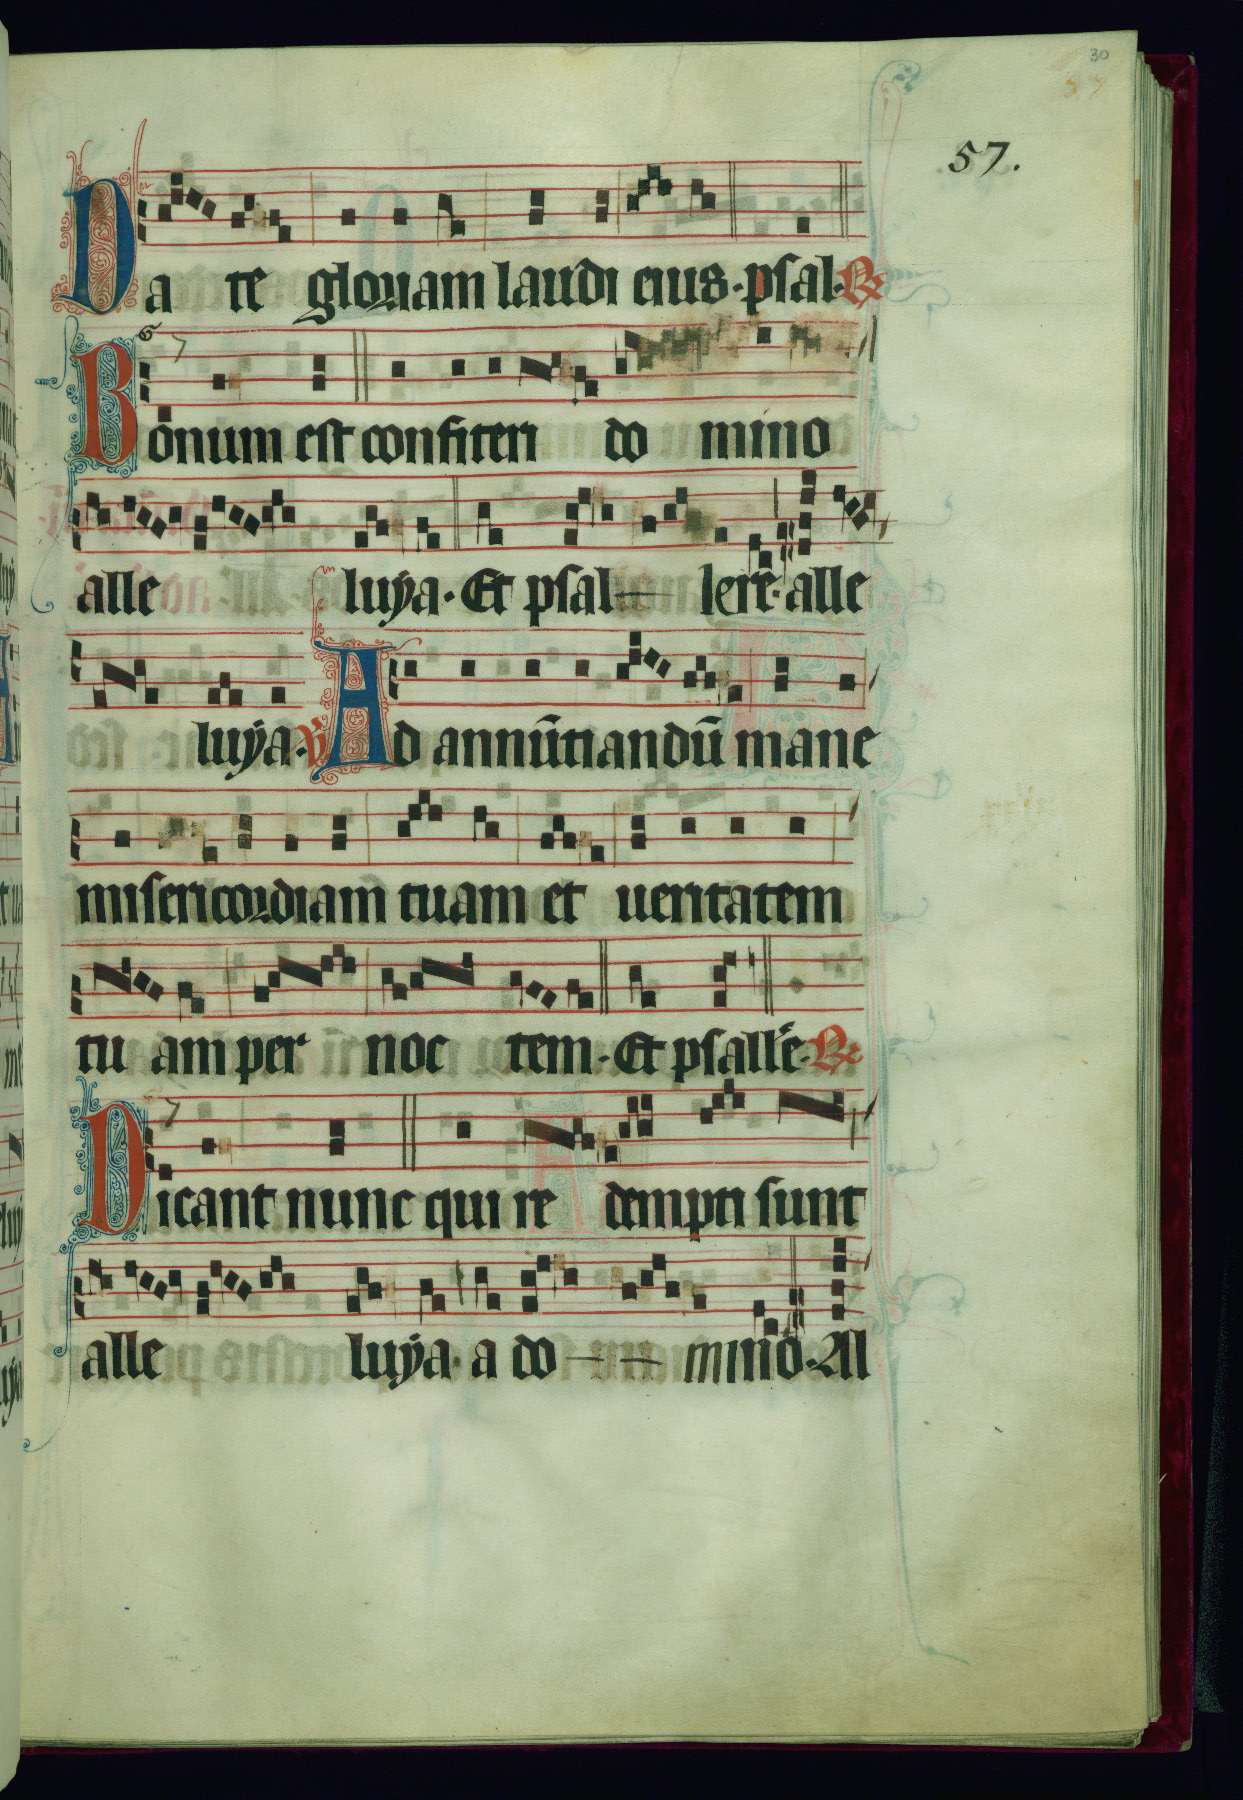 30
57
57.
Da te gloriam laudi eius. psal. ℟
Bonum est confiteri do mino
alle luÿa. Et psal— lere. alle
luÿa. ℣ Ad annūtiandū mane
misericordiam tuam et ueritatem
tu am per noc tem. Et psalle. ℟
Dicant nunc qui re dempti sunt
alle luÿa. a do — — mino. All